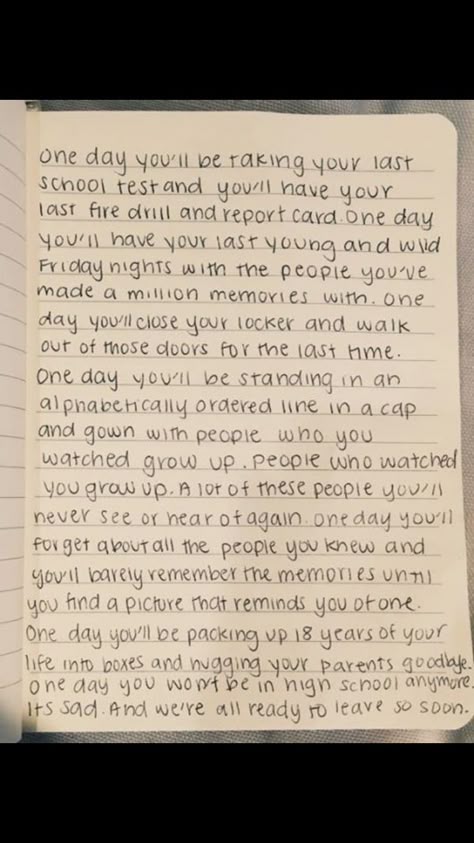 one day you'll be taking your last
school test and you'll have your
last fire drill and report card. One day
you'll have your last young and wild
Friday nights with the people you've
made a million memories with. One
day you'll close your locker and walk
out of those doors for the last time.
One day you'll be standing in an
alphabetically ordered line in a cap
and gown with people who you
watched grow up. People who watched
you grow up. A lot of these people you'll
never see or hear of again. One day you'll
forget about all the people you knew and
you'll barely remember the memories until
you find a picture that reminds you of one.
One day you'll be packing up 18 years of your
life into boxes and hugging your parents goodbye.
One day you won't be in high school anymore.
Its sad. And we're all ready to leave so soon.